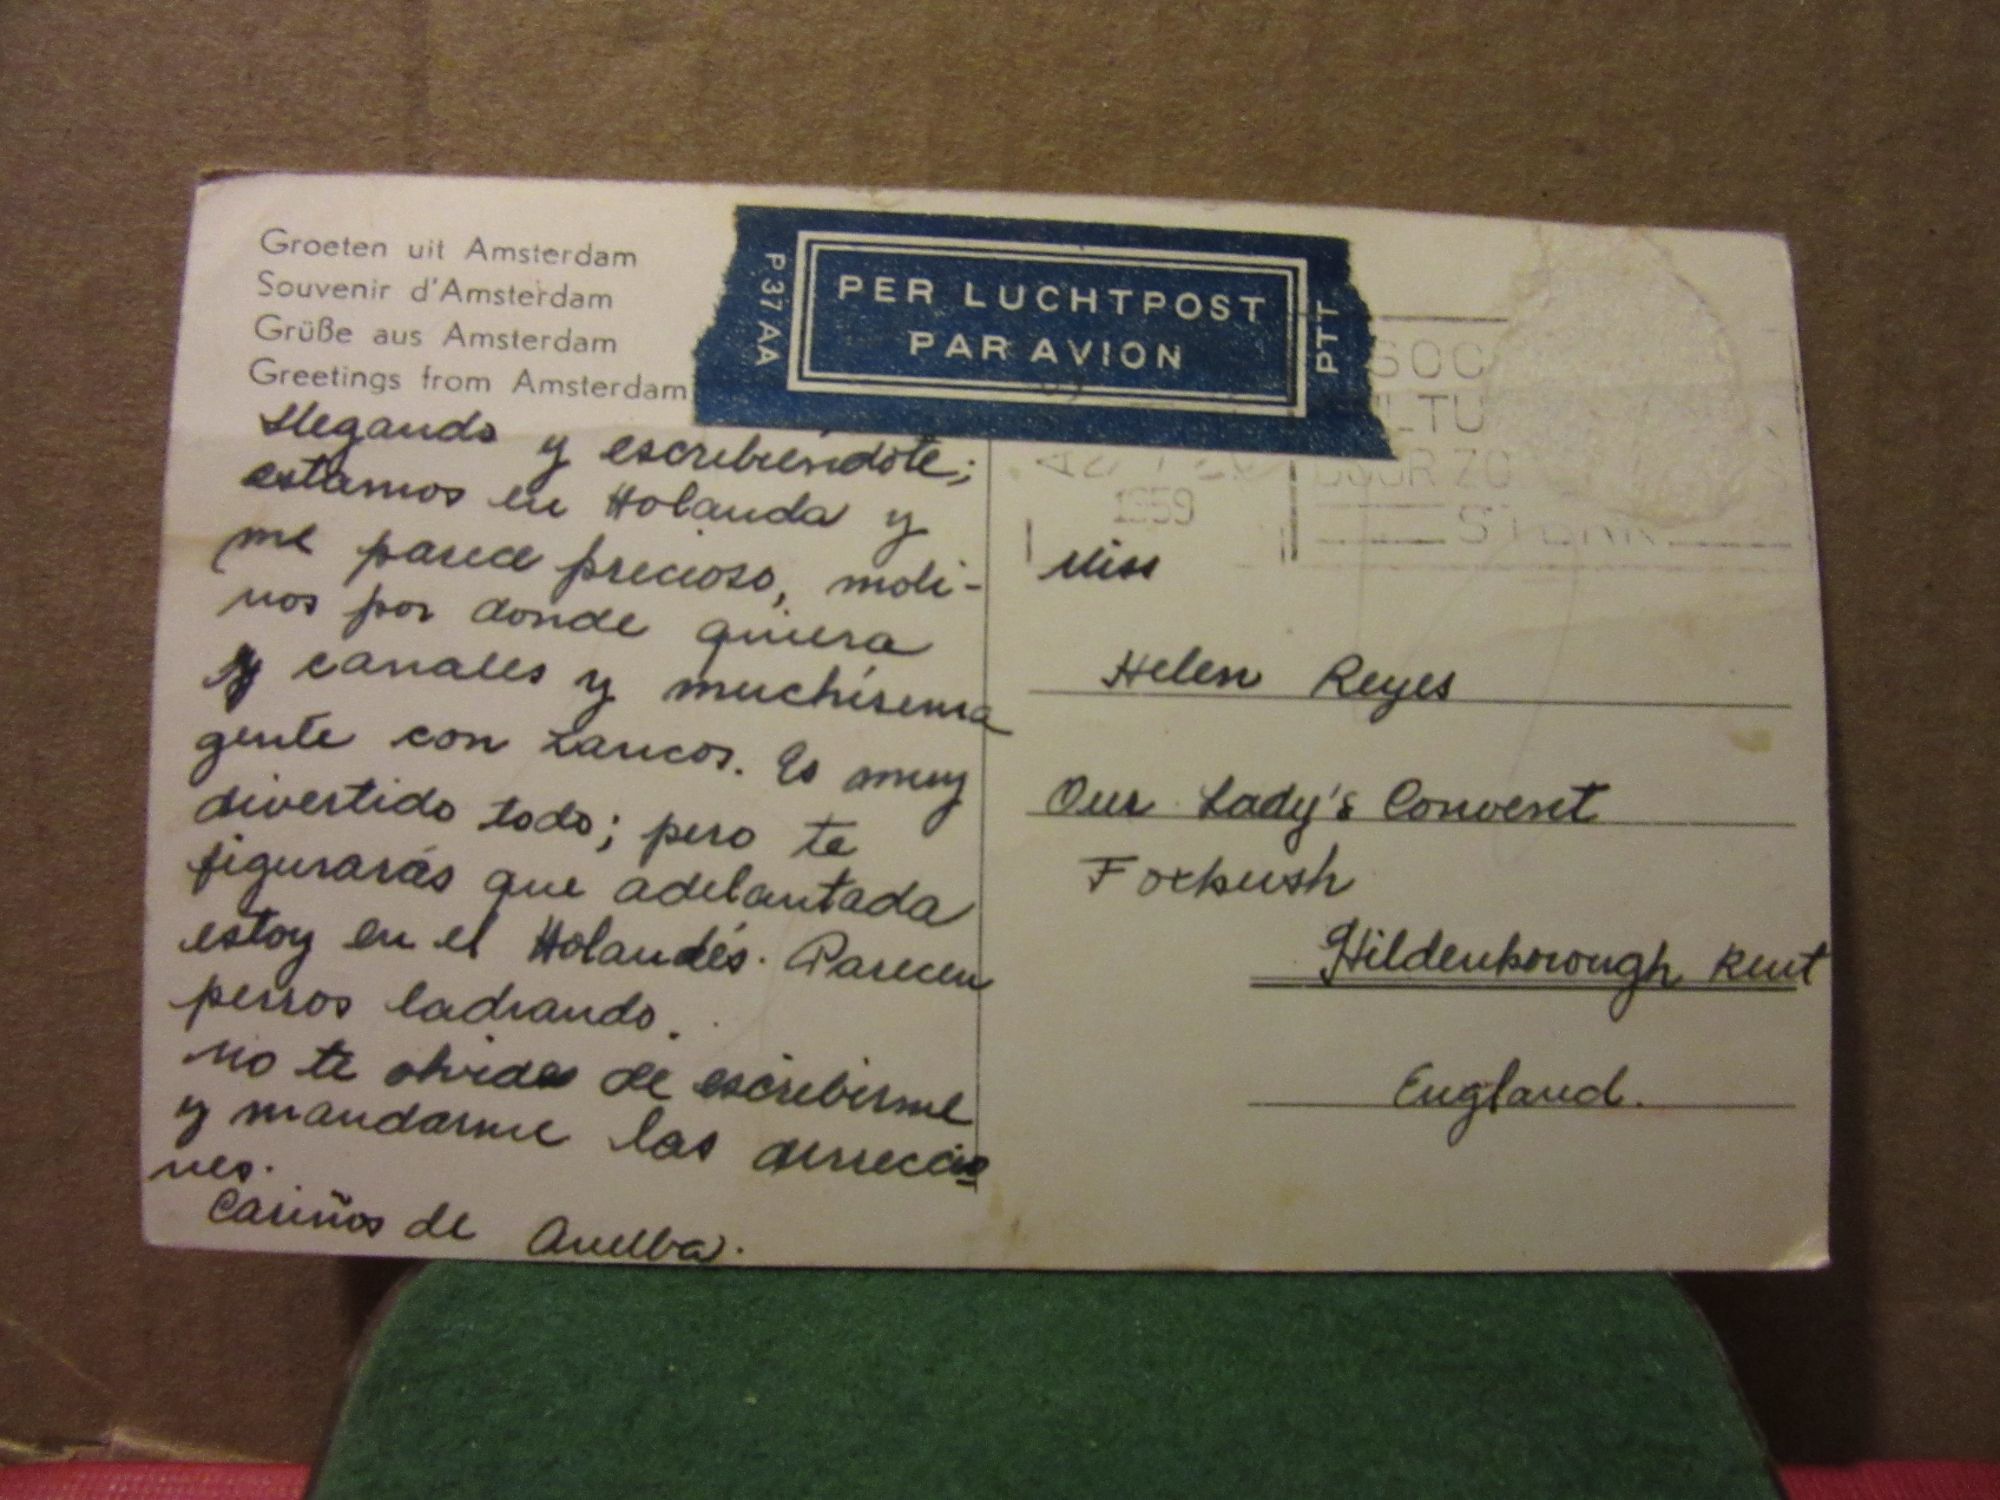 Groeten uit Amsterdam
Souvenir d'Amsterdam
Grüße aus Amsterdam
Greetings from Amsterdam
P 37 AA
PER LUCHTPOST
PAR AVION
PTT
SOC
LTU
DOOR ZO
STERK
1959
Llegando y escribiéndote;
estamos en Holanda y
me parece precioso, moli-
nos por donde quiera
y canales y muchísima
gente con zancos. Es muy
divertido todo; pero te
figurarás que adelantada
estoy en el Holandés. Parecen
perros ladrando.
No te olvides de escribirme
y mandarme las direccio
nes.
Cariños de
Miss
Helen Reyes
Our Lady's Convent
Foxbush
Hildenborough Kent
England.